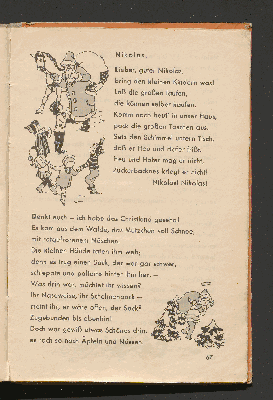 Nikolas.
Lieber, guter Nikolas,
bring den kleinen Kindern was!
Laß die großen laufen,
die können selber kaufen.
Komm auch heut' in unser Haus,
pack die großen Taschen aus.
Setz den Schimmel unterm Tisch,
daß er Heu und Hafer frißt.
Heu und Hafer mag er nicht,
Zuckerbackwerk kriegt er nicht!
Nikolas! Nikolas!
Denkt euch – ich habe das Christkind gesehn!
Es kam aus dem Walde, das Mützchen voll Schnee,
mit rotgefrorenem Näschen.
Die kleinen Hände taten ihm weh;
denn es trug einen Sack, der war gar schwer,
schleppte und polterte hinter ihm her. –
Was drin war, möchtet ihr wissen?
Ihr Naseweise, ihr Schelmenpack –
meint ihr, er wäre offen, der Sack?
Zugebunden bis obenhin!
Doch war gewiß etwas Schönes drin:
es roch so nach Äpfeln und Nüssen.
67